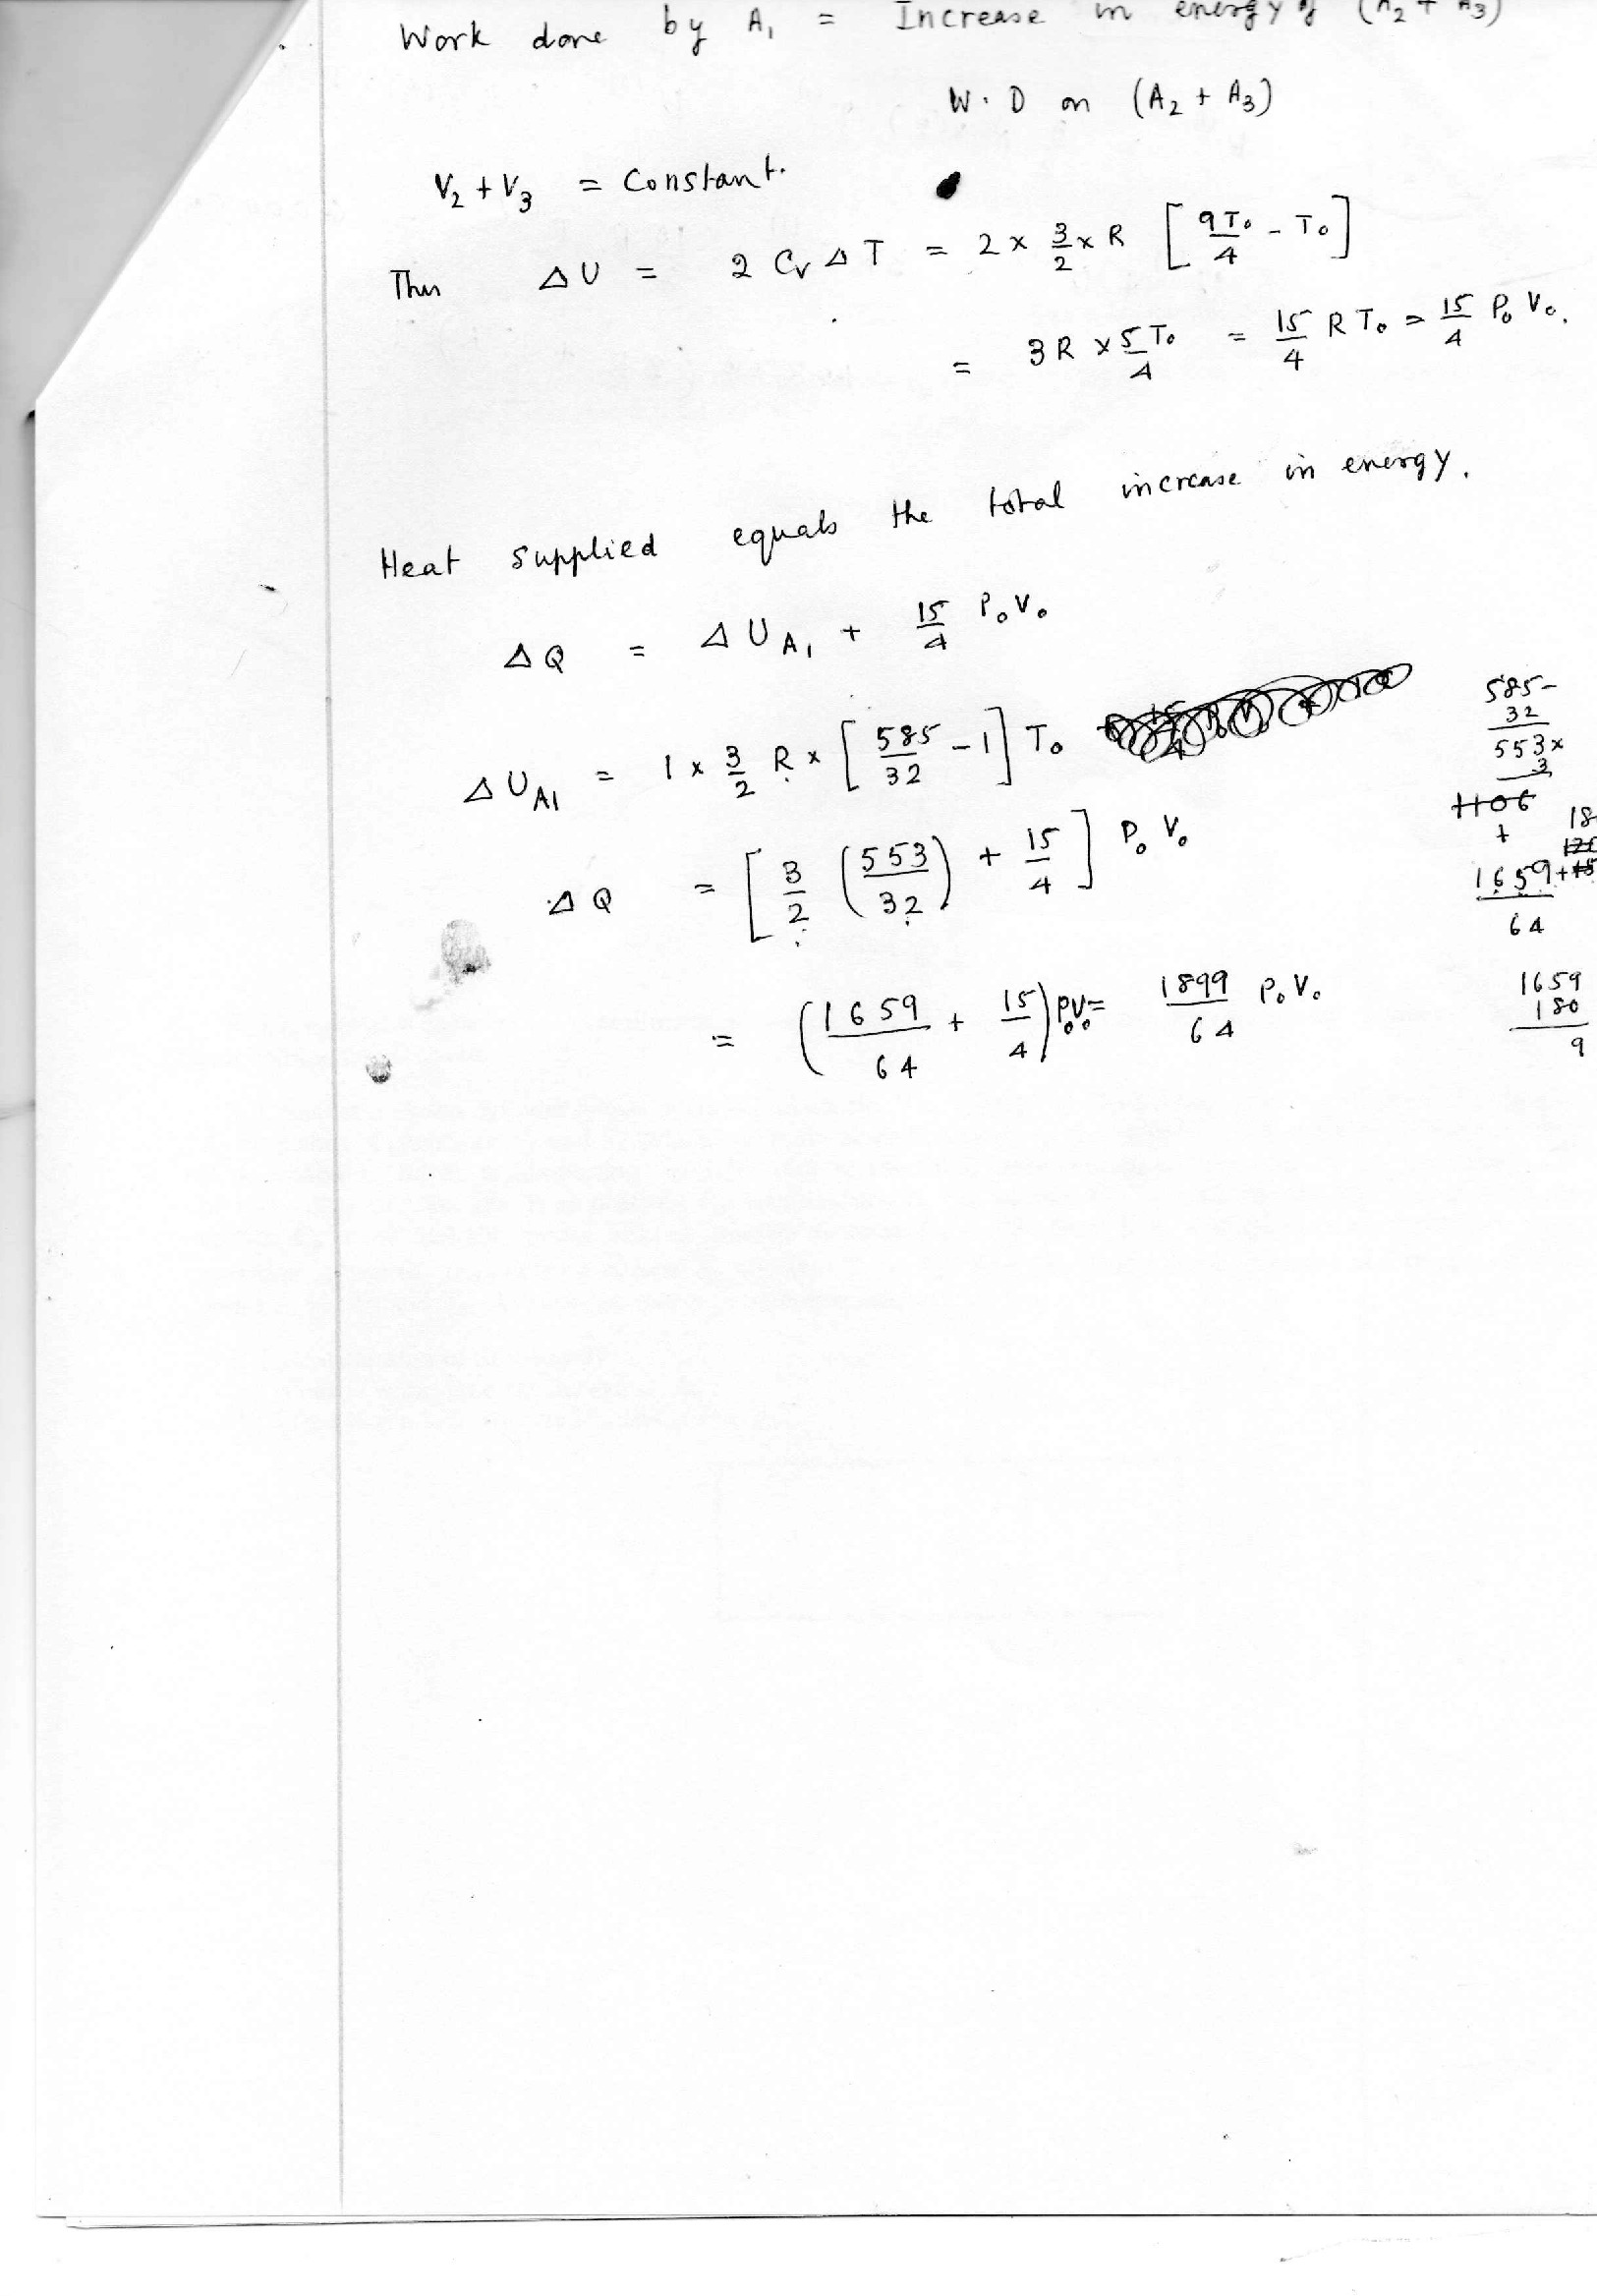 Work done by A₁ = Increase in energy of (A₂ + A₃)
W.D on (A₂ + A₃)
V₂ + V₃ = Constant.
Thus ΔU = 2 Cv ΔT = 2 × 3/2 × R [9T₀/4 - T₀]
= 3R × 5T₀/4 = 15/4 RT₀ = 15/4 P₀V₀.
Heat supplied equals the total increase in energy.
ΔQ = ΔU_A₁ + 15/4 P₀V₀
ΔU_A1 = 1 × 3/2 R × [585/32 - 1] T₀
ΔQ = [3/2 (553/32) + 15/4] P₀V₀
= (1659/64 + 15/4) P₀V₀ = 1899/64 P₀V₀
585-
32
553×
3
1106
+ 18
1659+
64
1659
180
9